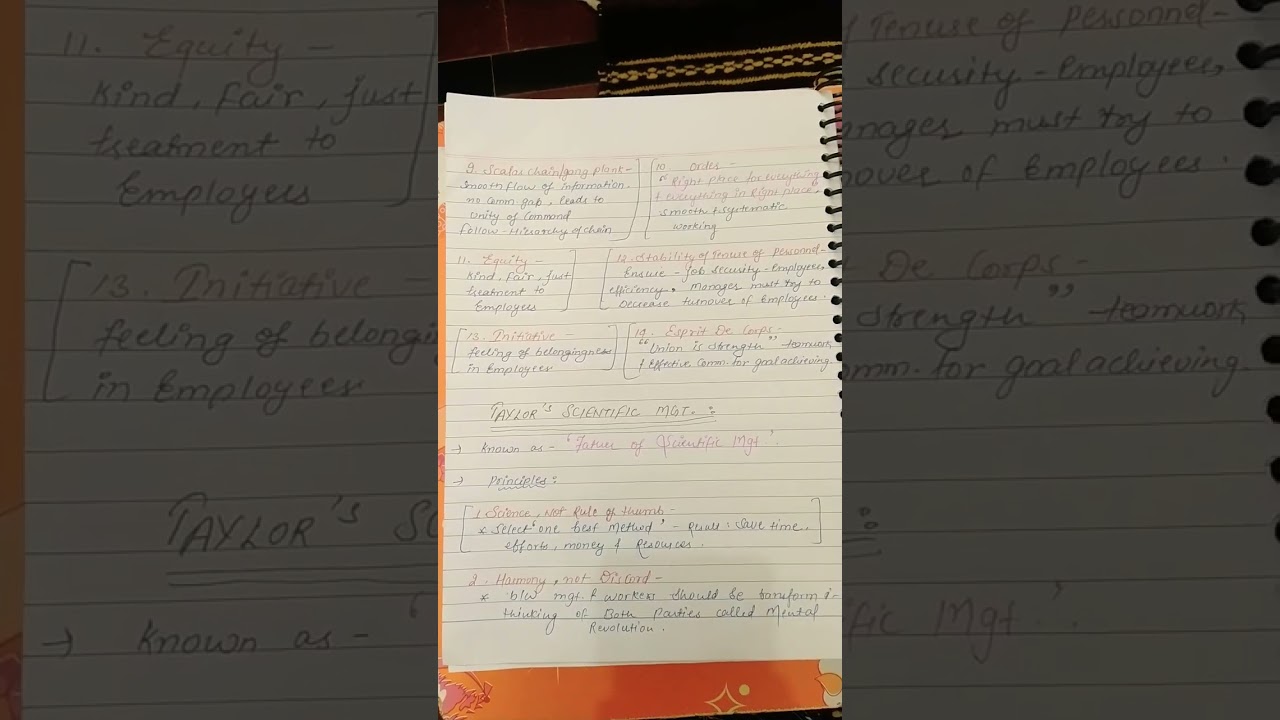 9. Scalar chain/gang plank -
smooth flow of information.
no comm gap, leads to
unity of Command
follow - Hierarchy of chain
10 Order -
"Right place for everything
+ everything in Right place"
smooth + systematic
working
11. Equity -
Kind, Fair, Just
treatment to
Employees
12. Stability of Tenure of Personnel -
Ensure - Job security - Employees,
efficiency. Manages must try to
Decrease turnover of Employees.
13. Initiative -
feeling of belongingness
in Employees
14. Esprit De Corps -
"Union is Strength" teamwork
& Effective Comm. for goal achieving.
TAYLOR'S SCIENTIFIC MGT. :
→ Known as - 'Father of Scientific Mgt.'
→ Principles :
1. Science, Not Rule of thumb -
* Select 'one best Method' - Result : Save time,
efforts, money & Resources.
2. Harmony, not Discord -
* b/w mgt. & workers should be transform in
thinking of Both Parties called Mental
Revolution.